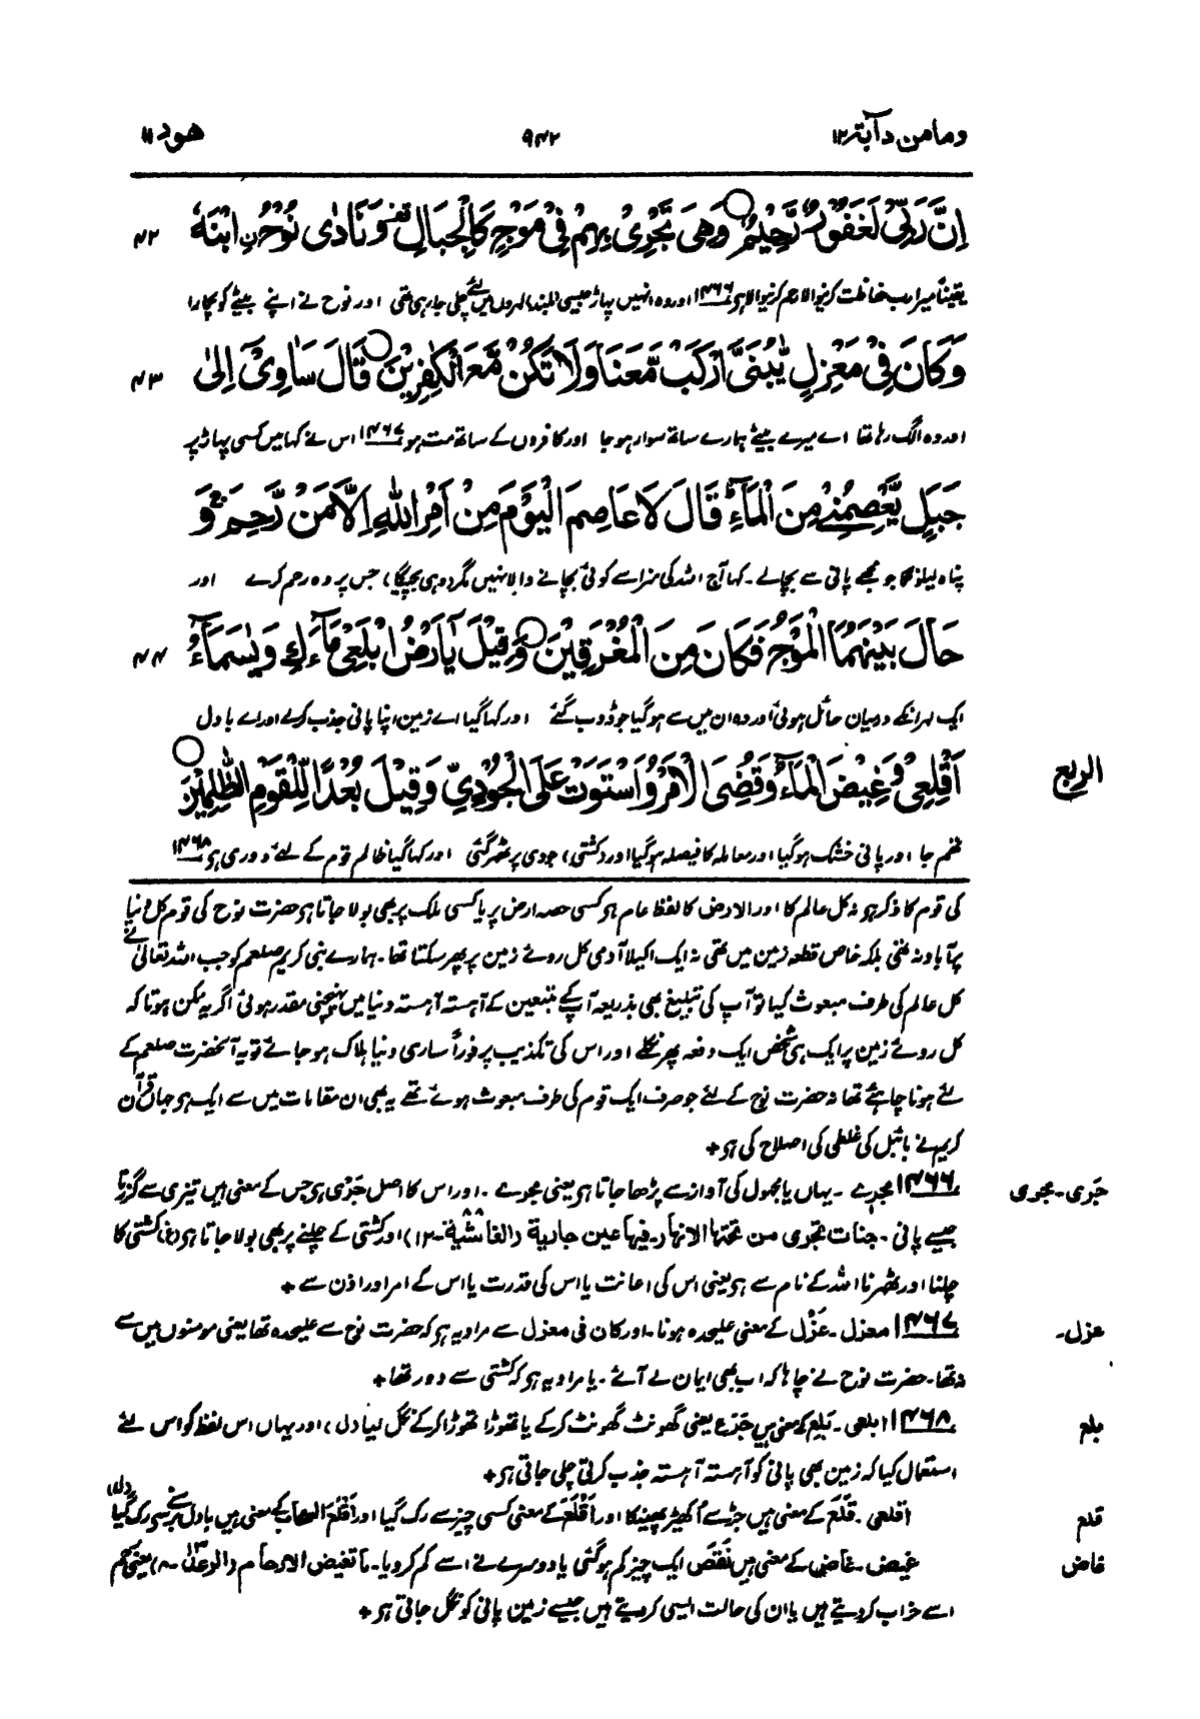 ومامن دآبة ١٢ ٩٤٢ هود ١١
اِنَّ رَبِّیْ لَغَفُوْرٌ رَّحِیْمٌ ○ وَهِیَ تَجْرِیْ بِهِمْ فِیْ مَوْجٍ كَالْجِبَالِ قف وَنَادٰی نُوْحُ نِ ابْنَهٗ ٤٢
یقیناً میرا رب حفاظت کرنیوالا رحم کرنیوالا ہے ١٤٦٦ اور وہ انہیں پہاڑ جیسی (بلند) لہروں میں لئے چلی جا رہی تھی اور نوح نے اپنے بیٹے کو پکارا
وَكَانَ فِیْ مَعْزِلٍ یّٰبُنَیَّ ارْكَبْ مَّعَنَا وَلَا تَكُنْ مَّعَ الْكٰفِرِیْنَ ○ قَالَ سَاٰوِیْۤ اِلٰی ٤٣
اور وہ الگ رہا تھا اے میرے بیٹے ہمارے ساتھ سوار ہو جا اور کافروں کے ساتھ مت ہو ١٤٦٧ اس نے کہا میں کسی پہاڑ پر
جَبَلٍ یَّعْصِمُنِیْ مِنَ الْمَآءِ ؕ قَالَ لَا عَاصِمَ الْیَوْمَ مِنْ اَمْرِ اللّٰهِ اِلَّا مَنْ رَّحِمَ ۚ وَ
پناہ لے لونگا جو مجھے پانی سے بچالے۔ کہا آج اللہ کی سزا سے کوئی بچانے والا نہیں مگر (وہی بچیگا) جس پر وہ رحم کرے اور
حَالَ بَیْنَهُمَا الْمَوْجُ فَكَانَ مِنَ الْمُغْرَقِیْنَ ○ وَقِیْلَ یٰۤاَرْضُ ابْلَعِیْ مَآءَكِ وَیٰسَمَآءُ ٤٤
ایک لہر انکے درمیان حائل ہوئی اور وہ ان میں سے ہو گیا جو ڈوب گئے اور کہا گیا اے زمین اپنا پانی جذب کرلے اور اے بادل
اَقْلِعِیْ وَغِیْضَ الْمَآءُ وَقُضِیَ الْاَمْرُ وَاسْتَوَتْ عَلَی الْجُوْدِیِّ وَقِیْلَ بُعْدًا لِّلْقَوْمِ الظّٰلِمِیْنَ ○
الربع
تھم جا اور پانی خشک ہو گیا اور معاملہ کا فیصلہ ہو گیا اور (کشتی) جودی پر ٹھہر گئی اور کہا گیا ظالم قوم کے لئے دوری ہو ١٤٦٨
کی قوم کا ذکر ہو نہ کل عالم کا اور الارض کا لفظ عام ہو کسی حصہ ارض پر یا کسی ملک پر بھی بولا جاتا ہو حضرت نوح کی قوم کل دنیا
پر آباد نہ تھی بلکہ خاص قطعہ زمین میں تھی نہ ایک اکیلا آدمی کل روئے زمین پر پھر سکتا تھا۔ ہمارے نبی کریم صلعم کو جب اللہ تعالیٰ نے
کل عالم کی طرف مبعوث کیا تو آپ کی تبلیغ بھی بذریعہ آپ کے متبعین کے آہستہ آہستہ دنیا میں پہنچنی مقدر ہوئی اگر یہ ممکن ہوتا کہ
کل روئے زمین پر ایک ہی شخص ایک دفعہ پھر نکلے اور اس کی تکذیب پر فوراً ساری دنیا ہلاک ہو جائے تو یہ آنحضرت صلعم کے
لئے ہونا چاہئے تھا نہ حضرت نوح کے لئے جو صرف ایک قوم کی طرف مبعوث ہوئے تھے یہ بھی ان مقامات میں سے ایک ہو جہاں قرآن
کریم نے بائبل کی غلطی کی اصلاح کی ہو +
جَری۔ مجری
١٤٦٦ مجرٖے۔ یہاں یا مجہول کی آواز سے پڑھا جاتا ہو یعنی مجرے۔ اور اس کا اصل جَرْی ہو جس کے معنی ہیں تیزی سے گزرنا
جیسے پانی۔ جنات تجری من تحتها الانهار۔ فیها عین جاریة (الغاشیة ٨٨۔١٢) اور کشتی کے چلنے پر بھی بولا جاتا ہو (غ) کشتی کا
چلنا اور ٹھہرنا اللہ کے نام سے ہو یعنی اس کی اعانت یا اس کی قدرت یا اس کے امر اور اذن سے +
عزل۔
١٤٦٧ معزل۔ عَزْل کے معنی علیحدہ ہونا۔ اور کان فی معزل سے مراد یہ ہو کہ حضرت نوح سے علیحدہ تھا یعنی مومنوں میں سے
نہ تھا۔ حضرت نوح نے چاہا کہ اب بھی ایمان لے آئے۔ یا مراد یہ ہو کہ کشتی سے دور تھا +
بلع
١٤٦٨ ابلعی۔ بَلِعَ کے معنی ہیں جَرَعَ یعنی گھونٹ گھونٹ کرکے یا تھوڑا تھوڑا کرکے نگل لیا (ل) اور یہاں اس لفظ کو اس لئے
استعمال کیا کہ زمین بھی پانی کو آہستہ آہستہ جذب کرتی چلی جاتی ہو +
قلع
اقلعی۔ قَلَعَ کے معنی ہیں جڑ سے اُکھیڑ پھینکا اور اَقْلَعَ کے معنی کسی چیز سے رک گیا اور اَقْلَعَ السحاب کے معنی ہیں بادل برسنے سے رک گیا (ل)
غاض
غیض۔ غاض کے معنی ہیں نَقَصَ ایک چیز کم ہو گئی یا دوسرے نے اسے کم کر دیا۔ ما تغیض الارحام (الرعد ١٣۔٨) یعنی رحم
اسے خراب کر دیتے ہیں یا ان کی حالت ایسی کر دیتے ہیں جیسے زمین پانی کو نگل جاتی ہو +